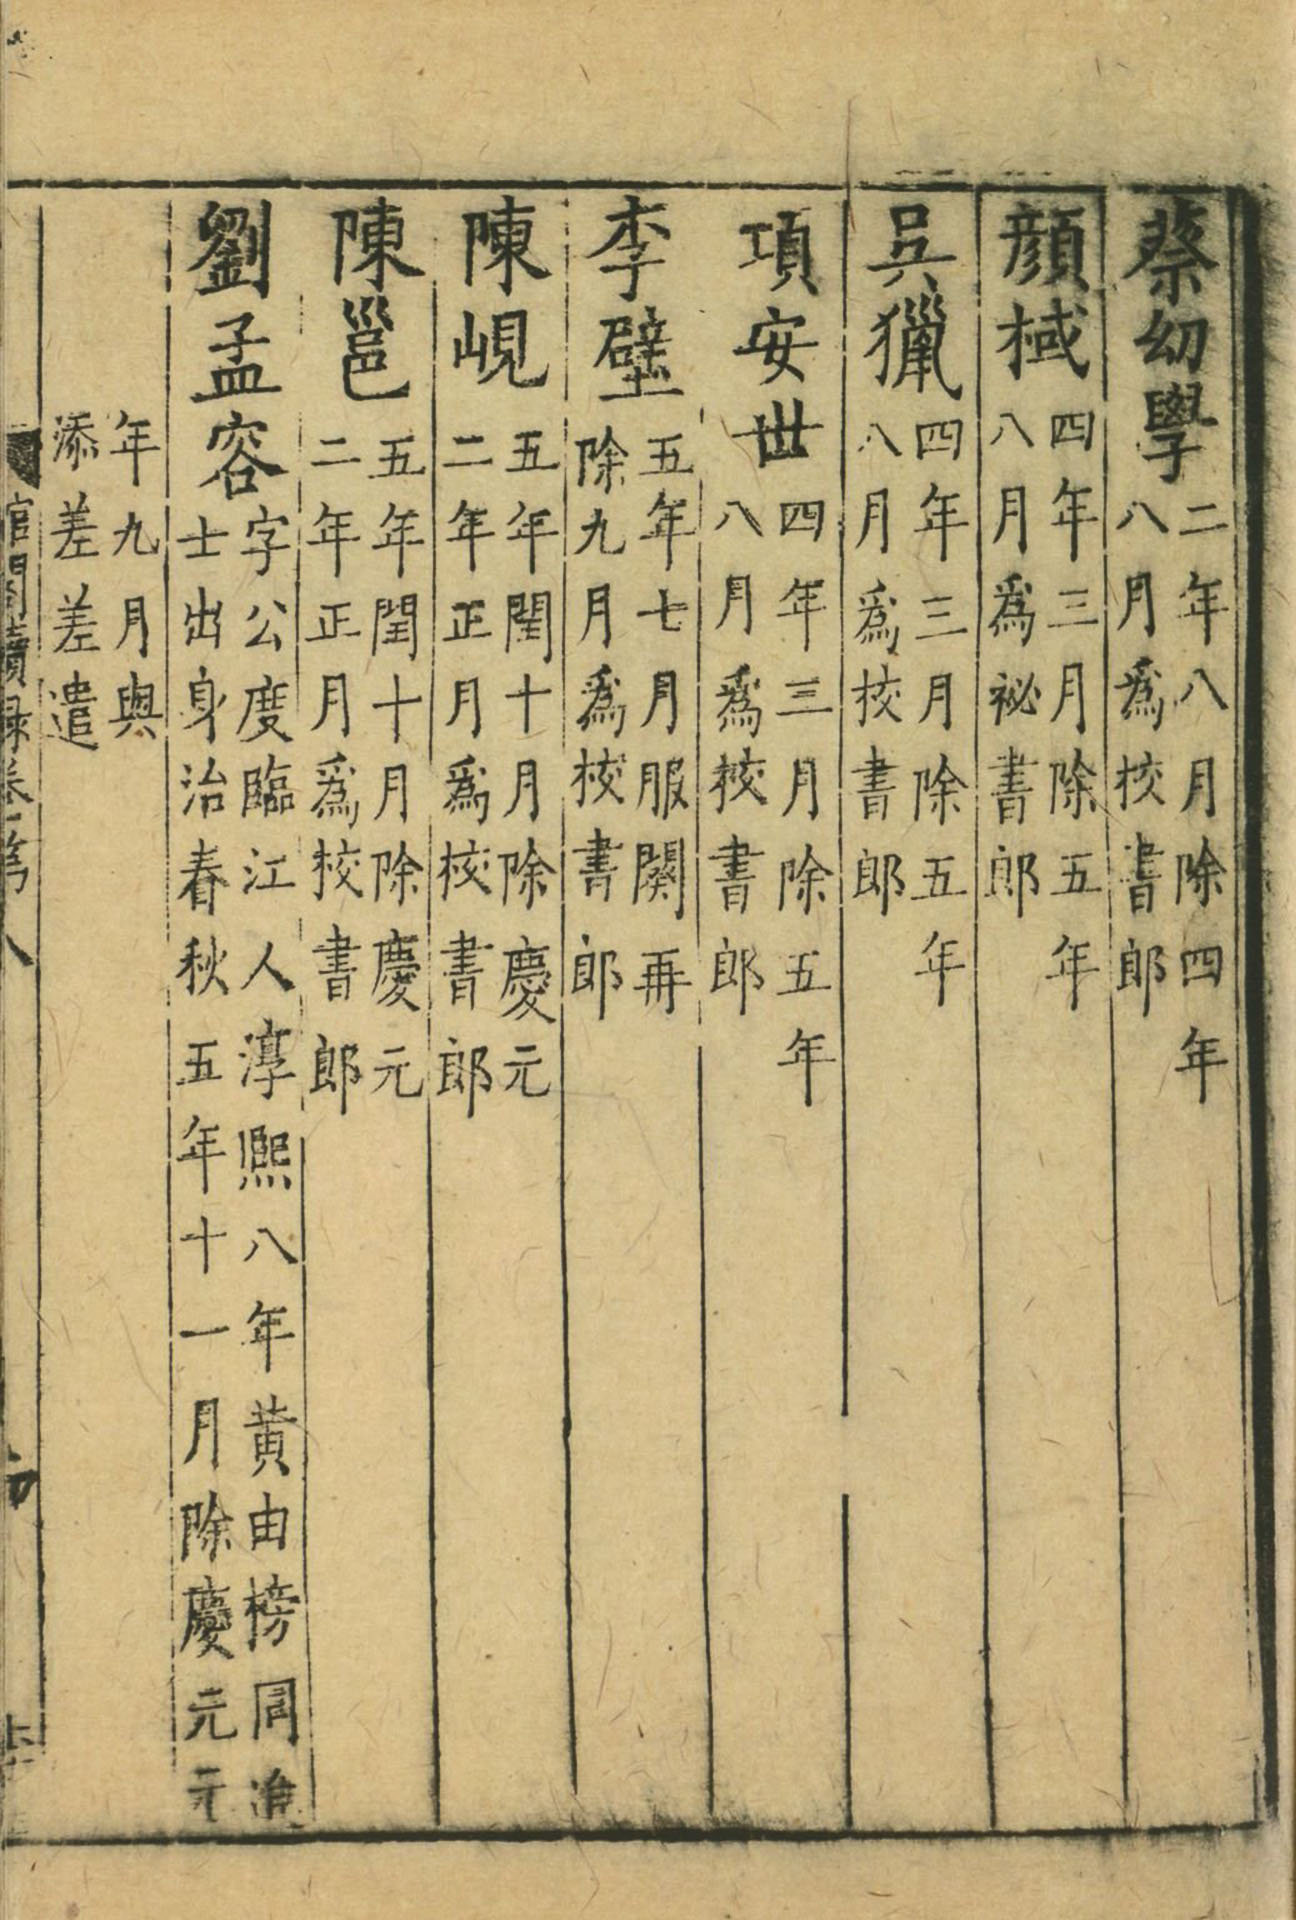 蔡幼學二年八月除四年
八月爲校書郎
顔棫四年三月除五年
八月爲祕書郎
吳獵四年三月除五年
八月爲校書郎
項安世四年三月除五年
八月爲校書郎
李壁五年七月服闋再
除九月爲校書郎
陳峴五年閏十月除慶元
二年正月爲校書郎
陳邕五年閏十月除慶元
二年正月爲校書郎
劉孟容字公度臨江人淳熙八年黄由榜同進
士出身治春秋五年十一月除慶元元
年九月與
添差差遣
館閣續録卷第八